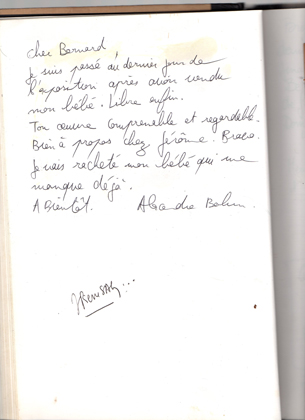 cher Bernard,
je suis passé au dernier jour de
l'exposition après avoir vendu
mon bébé. Libre enfin.
Ton œuvre comprenable et regardable.
Bien à propos chez Jérôme. Bravo.
Je vais racheté mon bébé qui me
manque déjà.
A Bientôt.